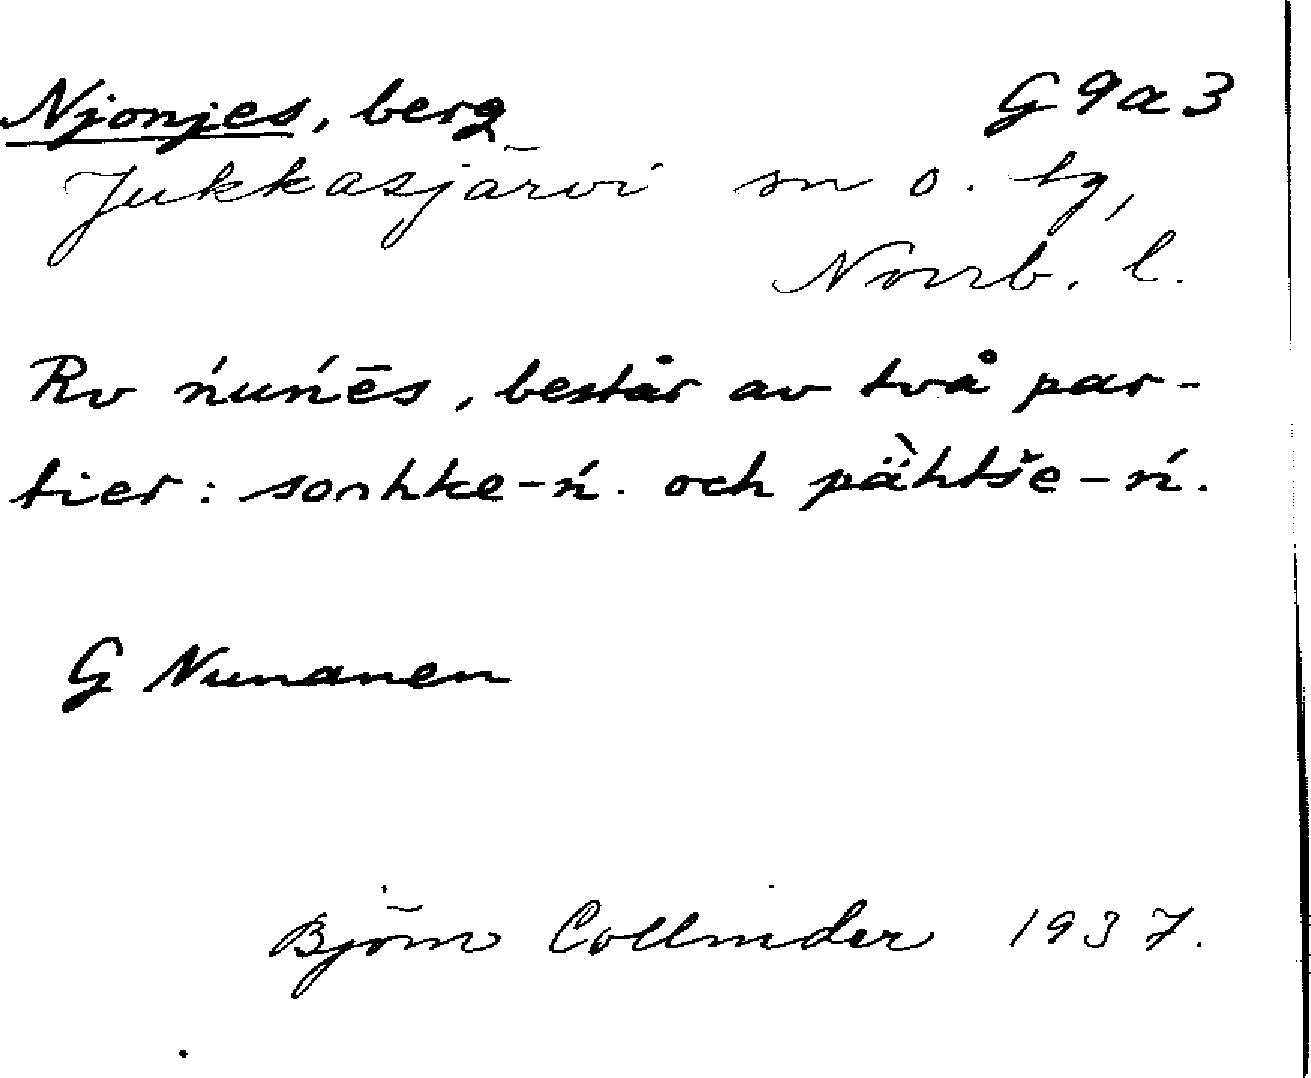 Njonjes, berg G 9 a 3
Jukkasjärvi sn o. tg,
Norrb. l.
Rv ńuńēs, består av två par-
tier: sorhke-ń. och pä̀htše-ń.
G Nunanen
Björn Collinder 1937.